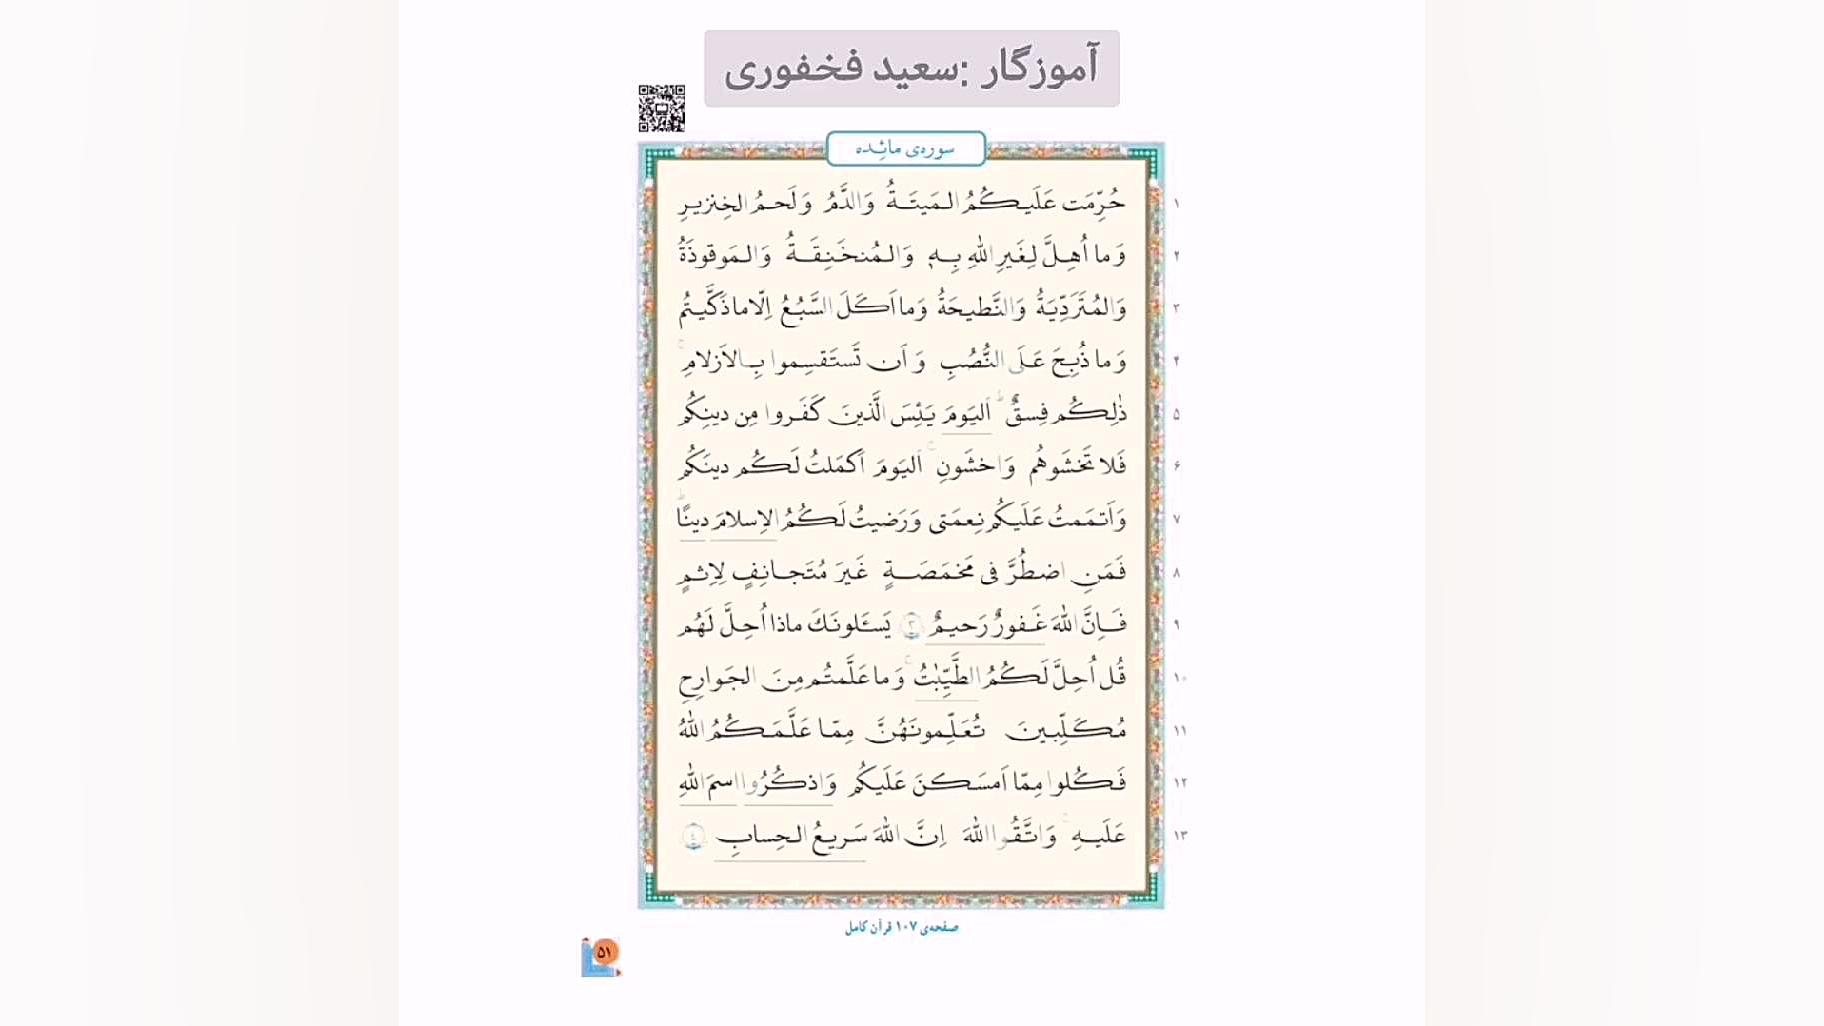 آموزگار :سعید فخفوری
سوره‌ی مائِده
حُرِّمَت عَلَيكُمُ المَيتَةُ وَالدَّمُ وَلَحمُ الخِنزيرِ ١
وَما اُهِلَّ لِغَيرِ اللّٰهِ بِهٖ وَالمُنخَنِقَةُ وَالمَوقوذَةُ ٢
وَالمُتَرَدِّيَةُ وَالنَّطيحَةُ وَما اَكَلَ السَّبُعُ اِلّا ما ذَكَّيتُم ٣
وَما ذُبِحَ عَلَى النُّصُبِ وَ اَن تَستَقسِموا بِالاَزلامِ ۚ ۴
ذٰلِكُم فِسقٌ ۗ اَليَومَ يَئِسَ الَّذينَ كَفَروا مِن دينِكُم ۵
فَلا تَخشَوهُم وَاخشَونِ ۚ اَليَومَ اَكمَلتُ لَكُم دينَكُم ۶
وَاَتمَمتُ عَلَيكُم نِعمَتى وَرَضيتُ لَكُمُ الاِسلامَ دينًا ۗ ٧
فَمَنِ اضطُرَّ فى مَخمَصَةٍ غَيرَ مُتَجانِفٍ لِاِثمٍ ٨
فَاِنَّ اللّٰهَ غَفورٌ رَحيمٌ ﴿٣﴾ يَسـَٔلونَكَ ماذا اُحِلَّ لَهُم ٩
قُل اُحِلَّ لَكُمُ الطَّيِّبٰتُ ۚ وَما عَلَّمتُم مِنَ الجَوارِحِ ١٠
مُكَلِّبينَ تُعَلِّمونَهُنَّ مِمّا عَلَّمَكُمُ اللّٰهُ ١١
فَكُلوا مِمّا اَمسَكنَ عَلَيكُم وَاذكُرُوا اسمَ اللّٰهِ ١٢
عَلَيهِ ۚ وَاتَّقُوا اللّٰهَ اِنَّ اللّٰهَ سَريعُ الحِسابِ ﴿٤﴾ ١٣
صفحه‌ی ۱۰۷ قرآن کامل
۵۱